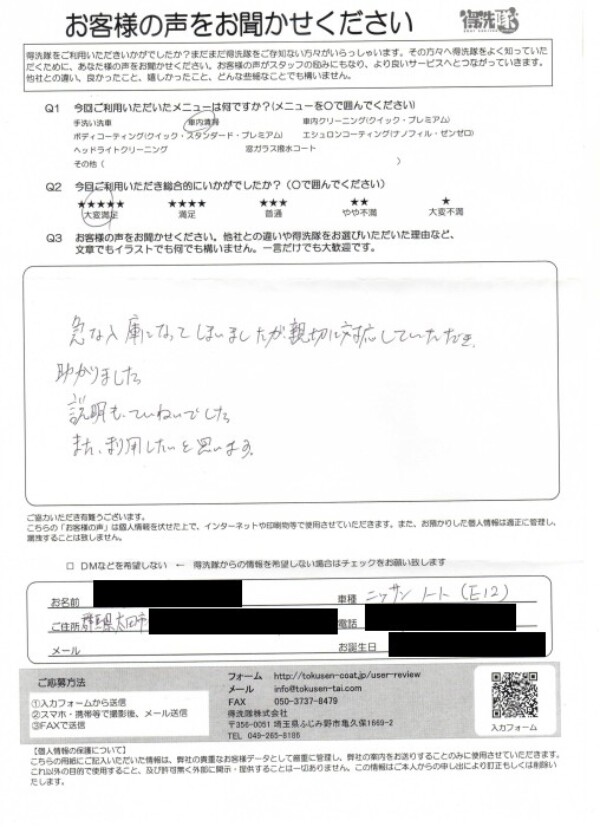 お客様の声をお聞かせください
得洗隊
得洗隊をご利用いただきいかがでしたか?まだまだ得洗隊をご存知ない方々がいらっしゃいます。その方々へ得洗隊をよく知っていた
だくために、あなた様の声をお聞かせください。お客様の声がスタッフの励みにもなり、より良いサービスへとつながっていきます。
他社との違い、良かったこと、嬉しかったこと、どんな些細なことでも構いません。
Q1 今回ご利用いただいたメニューは何ですか?(メニューを○で囲んでください)
手洗い洗車 車内清掃 車内クリーニング(クイック・プレミアム)
ボディコーティング(クイック・スタンダード・プレミアム) エシュロンコーティング(ナノフィル・ゼンゼロ)
ヘッドライトクリーニング 窓ガラス撥水コート
その他( )
Q2 今回ご利用いただき総合的にいかがでしたか?(○で囲んでください)
★★★★★ ★★★★ ★★★ ★★ ★
大変満足 満足 普通 やや不満 大変不満
Q3 お客様の声をお聞かせください。他社との違いや得洗隊をお選びいただいた理由など、
文章でもイラストでも何でも構いません。一言だけでも大歓迎です。
急な入庫になってしまいましたが、親切に対応していただき、
助かりました。
説明も、ていねいでした。
また、利用したいと思います。
ご協力いただき有難うございます。
こちらの「お客様の声」は個人情報を伏せた上で、インターネットや印刷物等で使用させていただきます。また、お預かりした個人情報は適正に管理し、
漏洩することは致しません。
□ DMなどを希望しない ← 得洗隊からの情報を希望しない場合はチェックをお願い致します
お名前 車種 ニッサン ノート (E12)
ご住所 群馬県太田市 電話
メール お誕生日
ご応募方法
①入力フォームから送信
②スマホ・携帯等で撮影後、メール送信
③FAXで送信
フォーム http://tokusen-coat.jp/user-review
メール info@tokusen-tai.com
FAX 050-3737-8479
得洗隊株式会社
〒356-0051 埼玉県ふじみ野市亀久保1669-2
TEL 049-265-8186
入力フォーム
【個人情報の保護について】
こちらの用紙にご記入いただいた情報は、弊社の貴重なお客様データとして厳重に管理し、弊社の案内をお送りすることのみに使用させていただきます。
これ以外の目的で使用すること、及び許可無く外部に開示・提供することは一切ありません。この情報はご本人からの申し出により訂正もしくは削除い
たします。